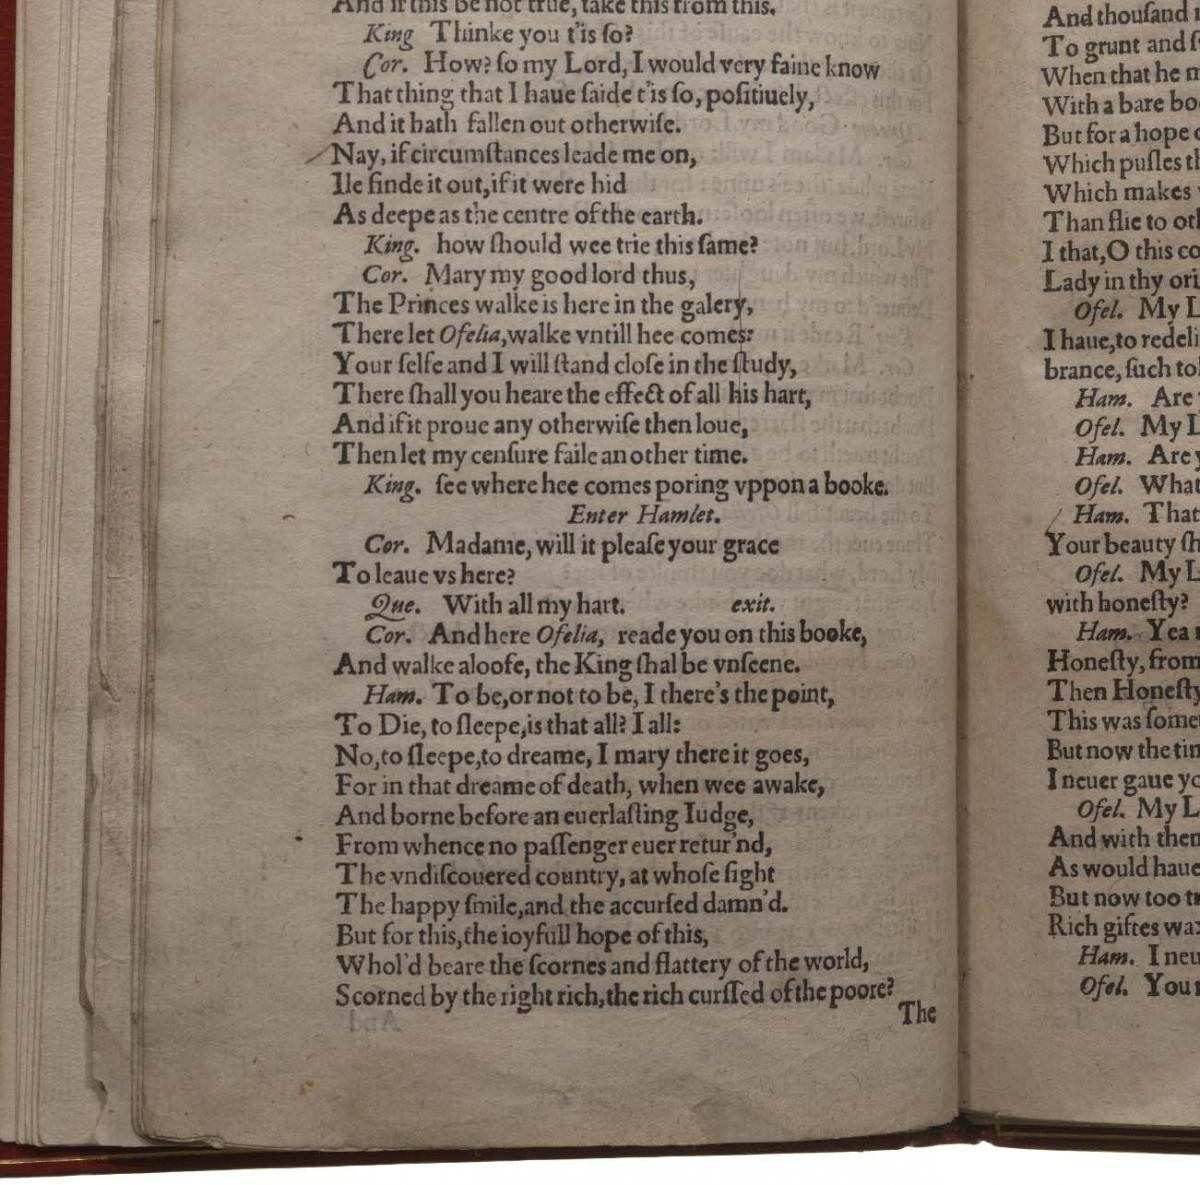 And if this be not true, take this from this.
King Thinke you t'is ſo?
Cor. How? ſo my Lord, I would very faine know
That thing that I haue ſaide t'is ſo, poſitiuely,
And it hath fallen out otherwiſe.
Nay, if circumſtances leade me on,
Ile finde it out, if it were hid
As deepe as the centre of the earth.
King. how ſhould wee trie this ſame?
Cor. Mary my good lord thus,
The Princes walke is here in the galery,
There let Ofelia, walke vntill hee comes:
Your ſelfe and I will ſtand cloſe in the ſtudy,
There ſhall you heare the effect of all his hart,
And if it proue any otherwiſe then loue,
Then let my cenſure faile an other time.
King. ſee where hee comes poring vppon a booke.
Enter Hamlet.
Cor. Madame, will it pleaſe your grace
To leaue vs here?
Que. With all my hart. exit.
Cor. And here Ofelia, reade you on this booke,
And walke aloofe, the King ſhal be vnſeene.
Ham. To be, or not to be, I there's the point,
To Die, to ſleepe, is that all? I all:
No, to ſleepe, to dreame, I mary there it goes,
For in that dreame of death, when wee awake,
And borne before an euerlaſting Iudge,
From whence no paſſenger euer retur'nd,
The vndiſcouered country, at whoſe ſight
The happy ſmile, and the accurſed damn'd.
But for this, the ioyfull hope of this,
Whol'd beare the ſcornes and flattery of the world,
Scorned by the right rich, the rich curſſed of the poore?
The
And thouſand
To grunt and
When that he
With a bare
But for a hope
Which puſles
Which makes
Than flie to
I that, O this
Lady in thy
Ofel. My
I haue, to
brance, ſuch
Ham. Are
Ofel. My
Ham. Are
Ofel. What
Ham. That
Your beauty
Ofel. My
with honeſty?
Ham. Yea
Honeſty, from
Then Honeſty
This was
But now the
I neuer gaue
Ofel. My
And with
As would haue
But now too
Rich giftes
Ham. I
Ofel. You